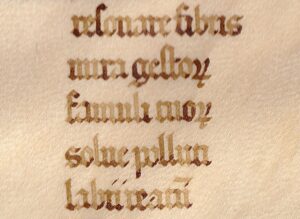 resonare fibris
mira gestoꝝ
famuli tuoꝝ
solue polluti
labii reatū